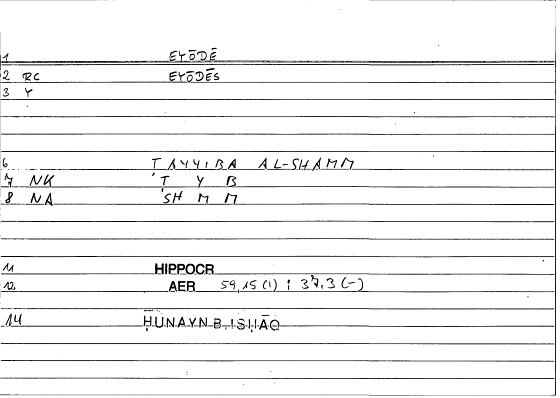 1 EYŌDĒ
2 RC EYŌDĒS
3 Y
6 TAYYIBA AL-SHAMM
7 NK 'T Y B
8 NA 'SH M M
11 HIPPOCR
12 AER 59,15 (1) ; 37,3 (-)
14 ḤUNAYN B. ISḤĀQ